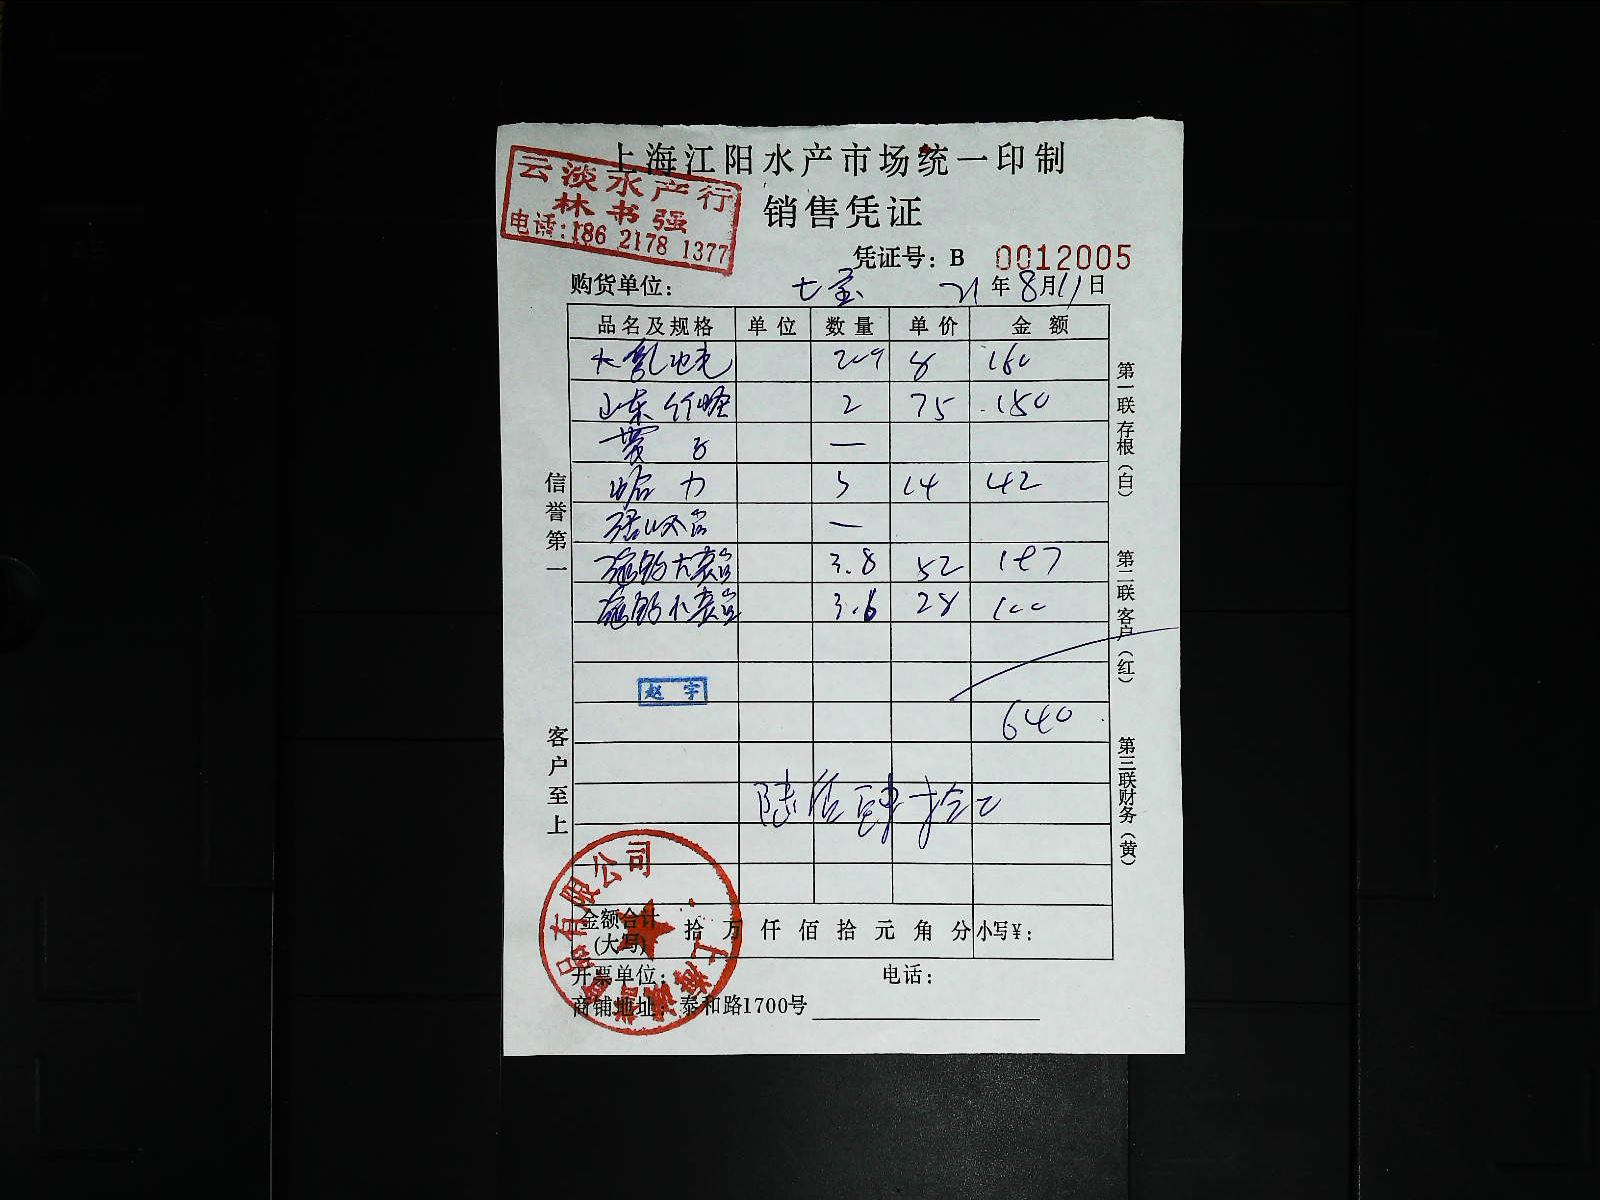 上海江阳水产市场统一印制
云淡水产行
林书强
电话:186 2178 1377
销售凭证
凭证号: B 0012005
购货单位: 七宝 21年8月11日
品名及规格 单位 数量 单价 金额
8 160
山东竹蛏 2 75 150
—
哈力 3 14 42
—
3.8 52 197
3.6 28 100
赵宇
640
陆佰肆拾元
金额合计(大写) 拾 万 仟 佰 拾 元 角 分 小写¥:
开票单位: 电话:
商铺地址: 泰和路1700号
信誉第一
客户至上
第一联存根(白)
第二联客户(红)
第三联财务(黄)
品有限公司
上海